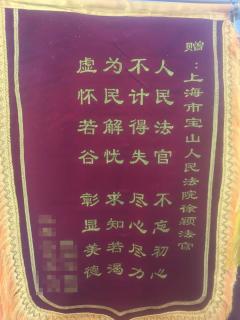 赠：上海市宝山人民法院徐颖法官
人民法官 不忘初心
不计得失 尽心尽力
为民解忧 求知若渴
虚怀若谷 彰显美德